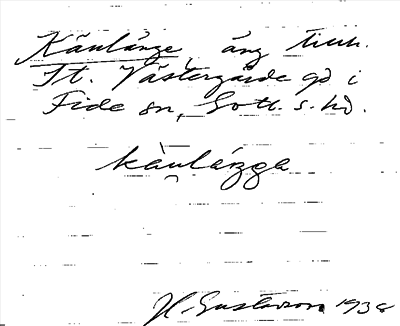 Käulänge, äng tillh.
St. Västergårde gd i
Fide sn, Gotl. s. hd.
käuláŋgα
H. Gustavson 1938